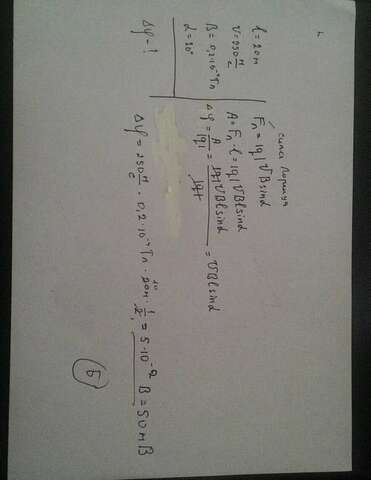 l = 20 м
V = 250 м/с
B = 0,2·10⁻⁴ Тл
α = 30°
Δφ - ?
сила Лоренца
Fл = |q|VBsinα
A = Fл·l = |q|VBlsinα
Δφ = A/|q| = |q|VBlsinα/|q| = VBlsinα
Δφ = 250 м/с · 0,2·10⁻⁴ Тл · 20 м · 1/2 = 5·10⁻² В = 50 мВ
5